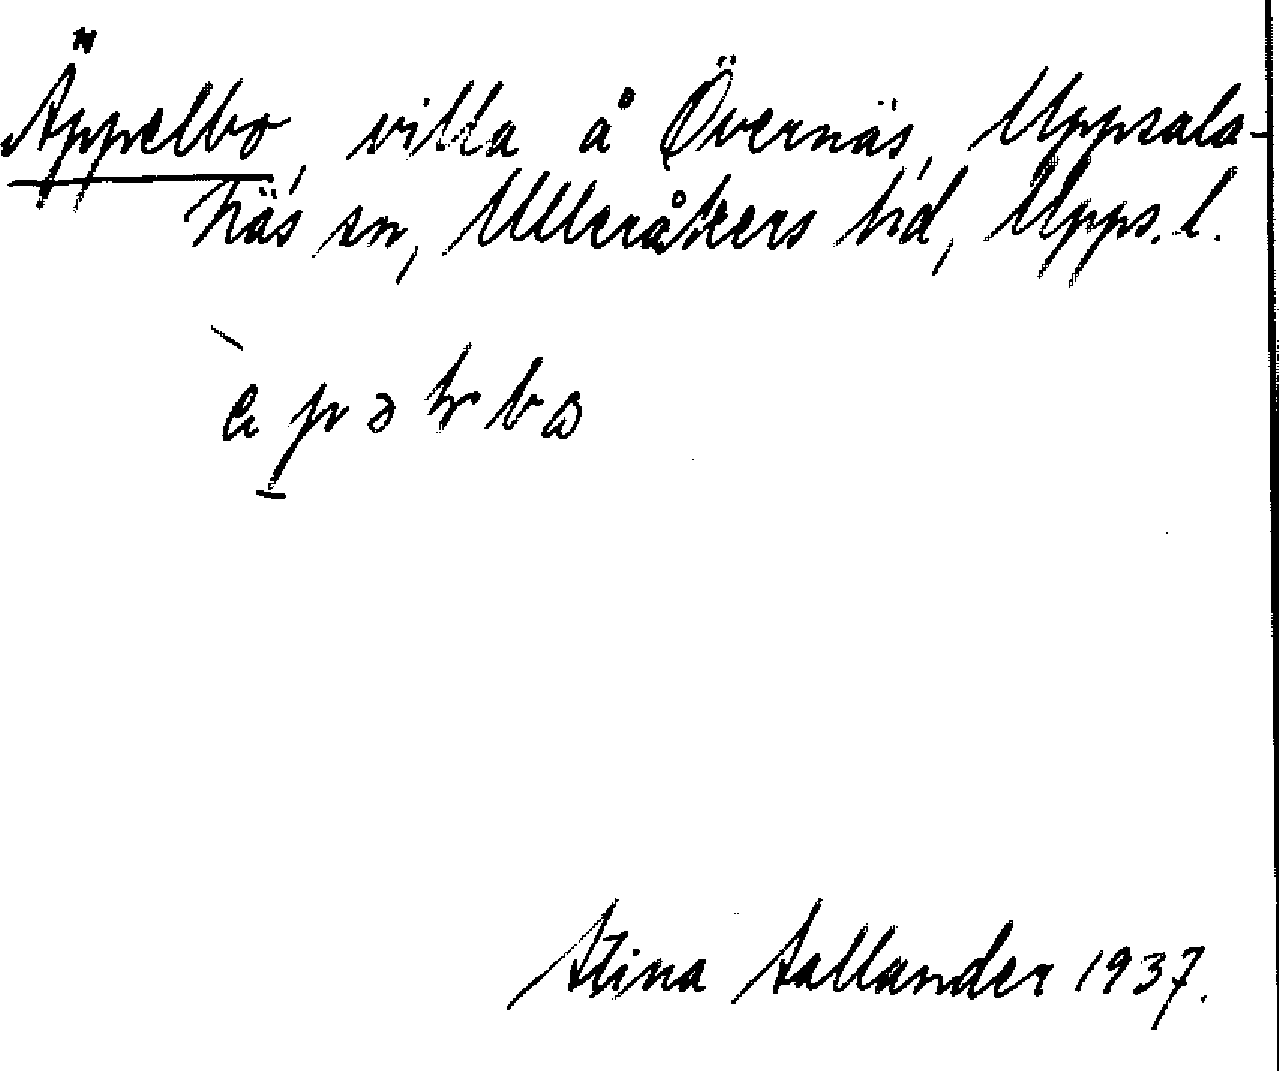 Äppelbo, villa å Övernäs, Uppsala-
näs sn, Ulleråkers hd, Upps. l.
Stina Sallander 1937.